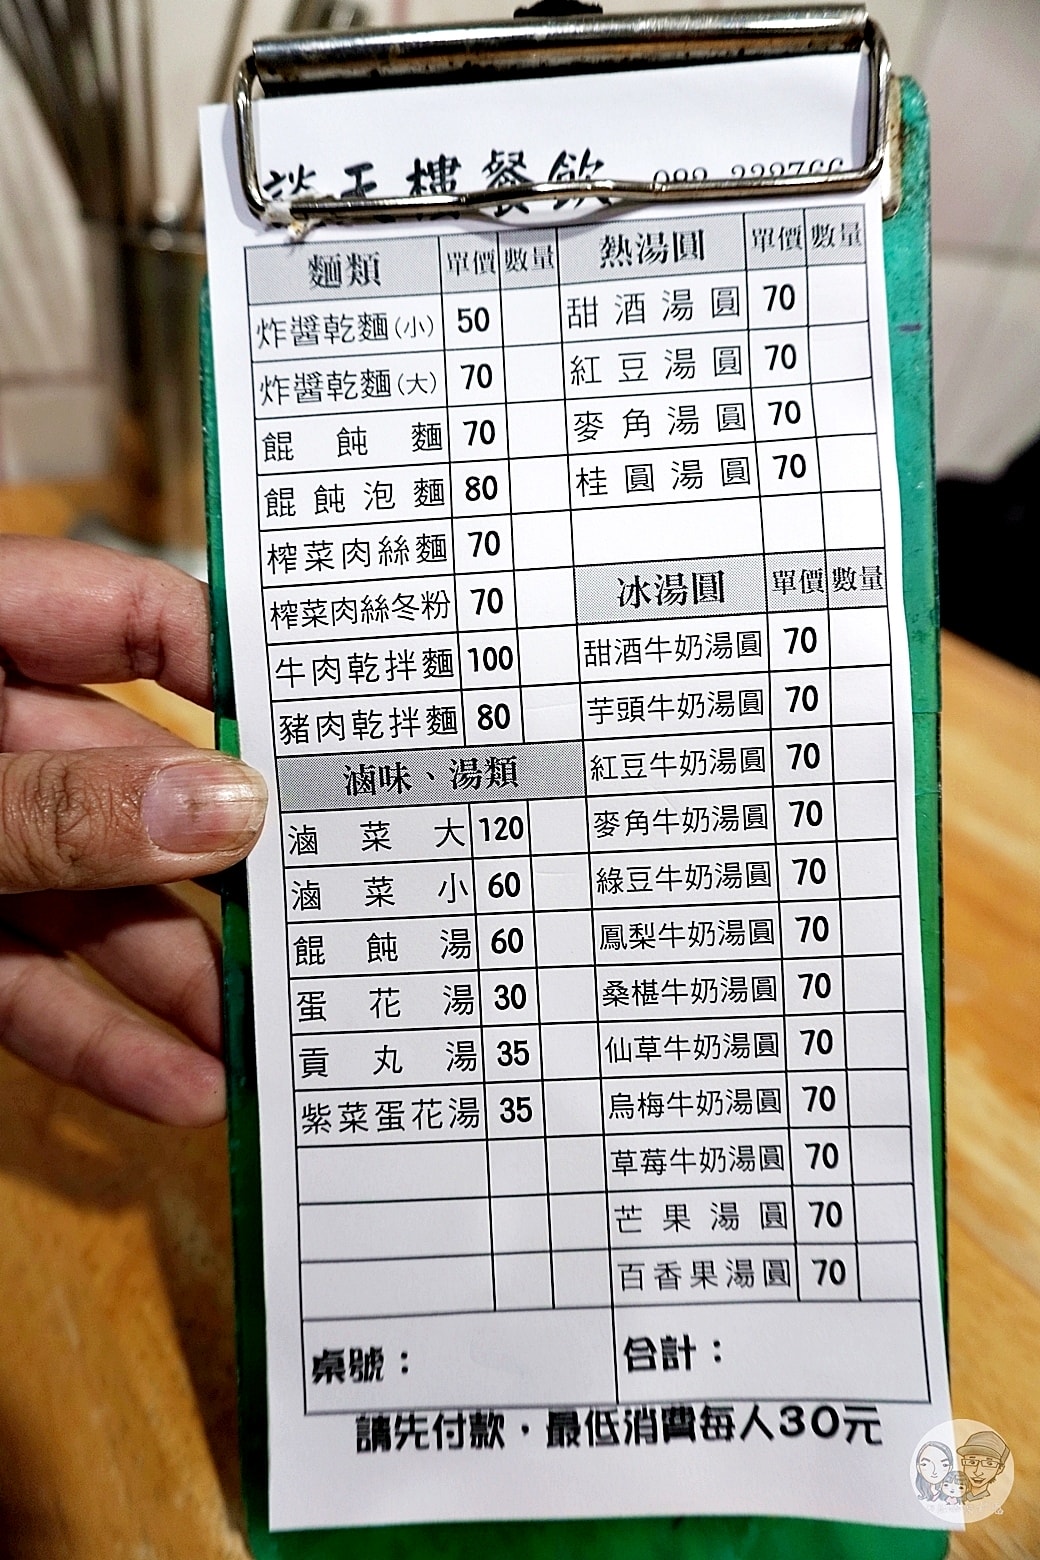 談天樓餐飲 089-322766
麵類 單價 數量
炸醬乾麵(小) 50
炸醬乾麵(大) 70
餛飩麵 70
餛飩泡麵 80
榨菜肉絲麵 70
榨菜肉絲冬粉 70
牛肉乾拌麵 100
豬肉乾拌麵 80
滷味、湯類
滷菜大 120
滷菜小 60
餛飩湯 60
蛋花湯 30
貢丸湯 35
紫菜蛋花湯 35
熱湯圓 單價 數量
甜酒湯圓 70
紅豆湯圓 70
麥角湯圓 70
桂圓湯圓 70
冰湯圓 單價 數量
甜酒牛奶湯圓 70
芋頭牛奶湯圓 70
紅豆牛奶湯圓 70
麥角牛奶湯圓 70
綠豆牛奶湯圓 70
鳳梨牛奶湯圓 70
桑椹牛奶湯圓 70
仙草牛奶湯圓 70
烏梅牛奶湯圓 70
草莓牛奶湯圓 70
芒果湯圓 70
百香果湯圓 70
桌號：
合計：
請先付款，最低消費每人30元